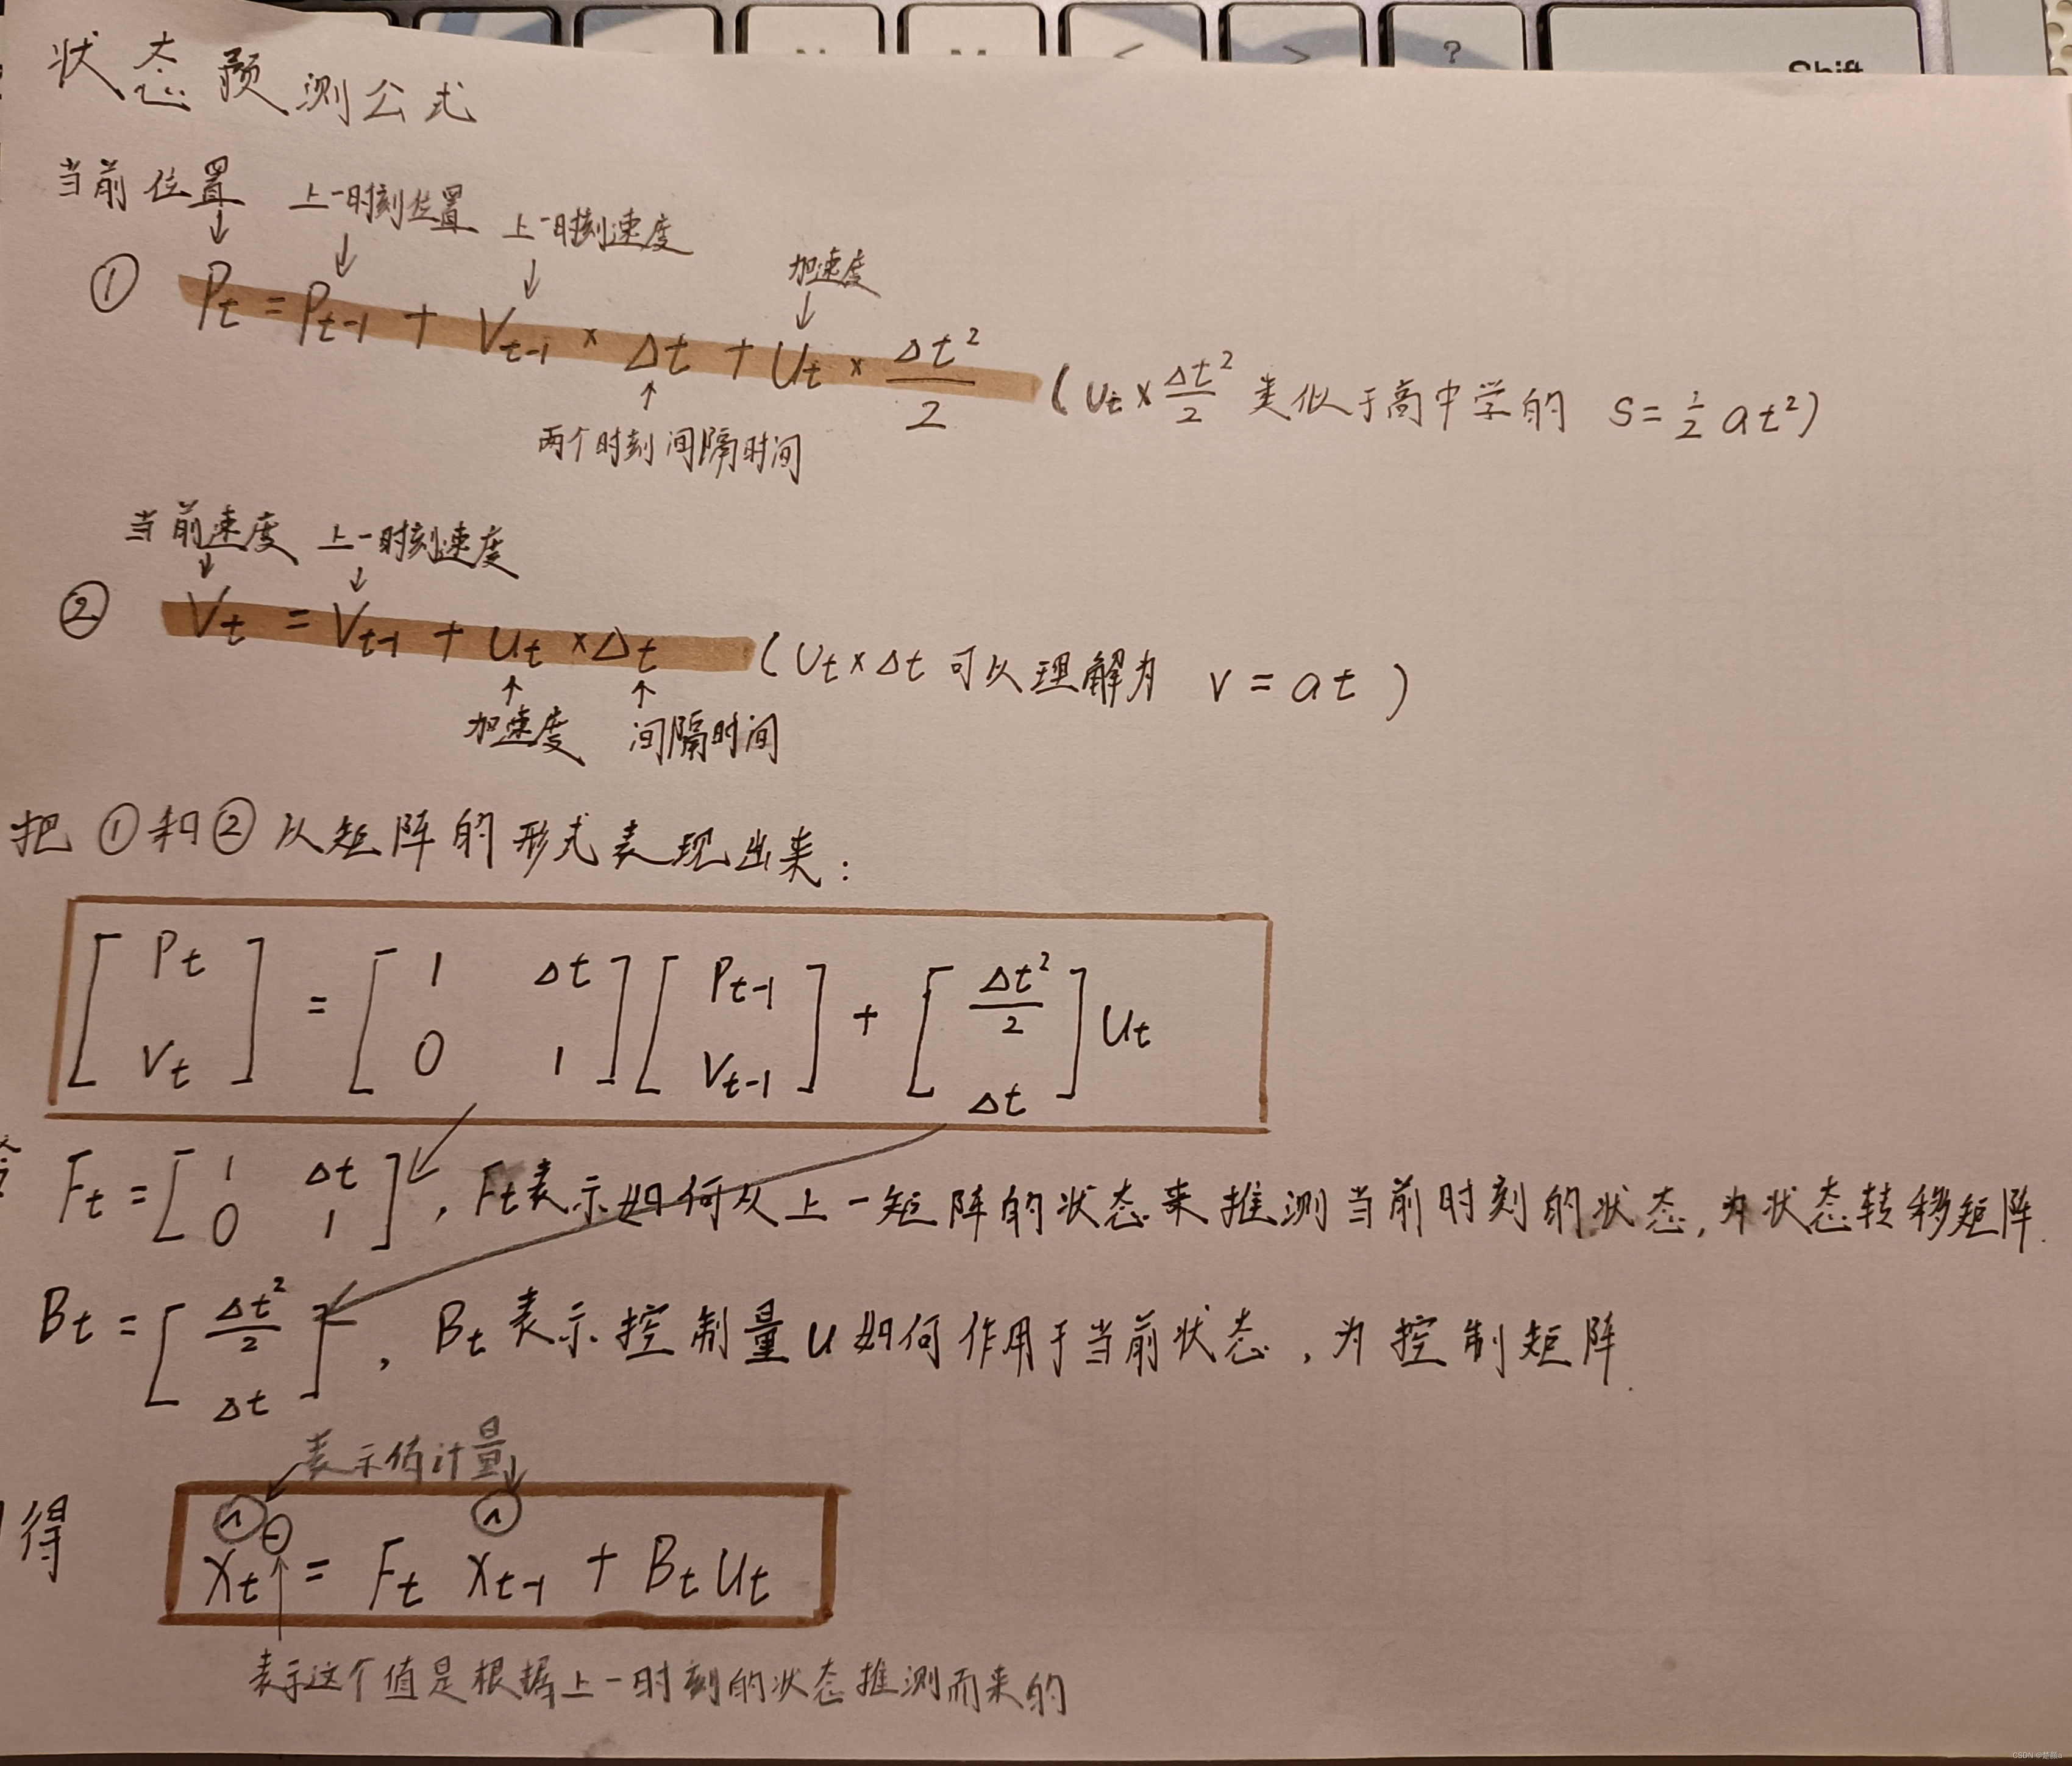 ? Shift
状态预测公式
当前位置 上一时刻位置 上一时刻速度 加速度
① Pt = Pt-1 + Vt-1 × Δt + Ut × Δt²/2 (Ut × Δt²/2 类似于高中学的 S = 1/2 at²)
两个时刻间隔时间
当前速度 上一时刻速度
② Vt = Vt-1 + Ut × Δt (Ut × Δt 可以理解为 v = at)
加速度 间隔时间
把①和②以矩阵的形式表现出来:
[Pt Vt] = [1 Δt 0 1] [Pt-1 Vt-1] + [Δt²/2 Δt] Ut
令 Ft = [1 Δt 0 1], Ft表示如何从上一矩阵的状态来推测当前时刻的状态, 为状态转移矩阵.
Bt = [Δt²/2 Δt], Bt表示控制量u如何作用于当前状态, 为控制矩阵.
表示估计量
得 x̂t⁻ = Ft x̂t-1 + Bt Ut
表示这个值是根据上一时刻的状态推测而来的